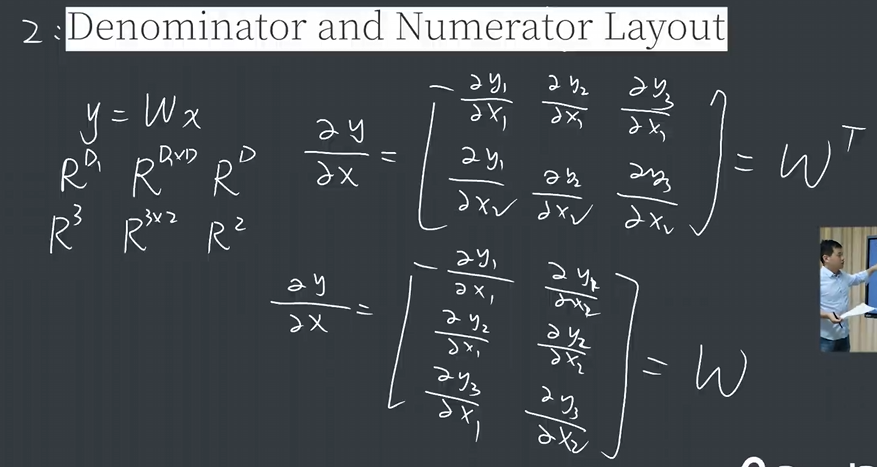 2: Denominator and Numerator Layout
y = Wx
R^{D₁} R^{D₁×D} R^D
R^3 R^{3×2} R^2
∂y/∂x = [ ∂y₁/∂x₁ ∂y₂/∂x₁ ∂y₃/∂x₁
∂y₁/∂x₂ ∂y₂/∂x₂ ∂y₃/∂x₂ ] = W^T
∂y/∂x = [ ∂y₁/∂x₁ ∂y₁/∂x₂
∂y₂/∂x₁ ∂y₂/∂x₂
∂y₃/∂x₁ ∂y₃/∂x₂ ] = W